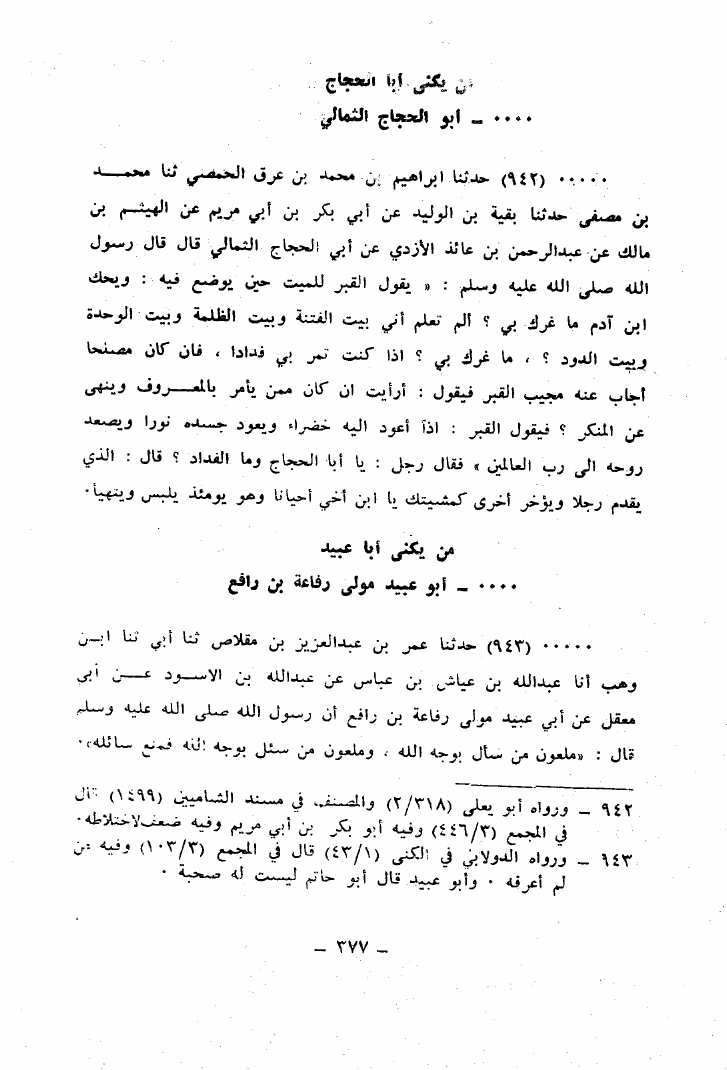 من يكنى أبا الحجاج
٠٠٠٠ ــ أبو الحجاج الثمالي
٠٠٠٠٠ (٩٤٢) حدثنا ابراهيم بن محمد بن عرق الحمصي ثنا محمــد
بن مصفى حدثنا بقية بن الوليد عن أبي بكر بن أبي مريم عن الهيثــم بن
مالك عن عبدالرحمن بن عائذ الأزدي عن أبي الحجاج الثمالي قال قال رسول
الله صلى الله عليه وسلم : « يقول القبر للميت حين يوضع فيه : ويحك
ابن آدم ما غرك بي ؟ ألم تعلم أني بيت الفتنة وبيت الظلمة وبيت الوحدة
وبيت الدود ؟ ، ما غرك بي ؟ اذا كنت تمر بي فدادا ، فان كان مصلحا
أجاب عنه مجيب القبر فيقول : أرأيت ان كان ممن يأمر بالمعــروف وينهى
عن المنكر ؟ فيقول القبر : اذآ أعود اليه خضراء ويعود جسده نورا ويصعد
روحه الى رب العالمين » فقال رجل : يا أبا الحجاج وما الفداد ؟ قال : الذي
يقدم رجلا ويؤخر أخرى كمشيتك يا ابن أخي أحيانا وهو يومئذ يلبس ويتهيأ٠
من يكنى أبا عبيد
٠٠٠٠ ــ أبو عبيد مولى رفاعة بن رافع
٠٠٠٠٠ (٩٤٣) حدثنا عمر بن عبدالعزيز بن مقلاص ثنا أبي ثنا ابــن
وهب أنا عبدالله بن عياش بن عباس عن عبدالله بن الاســود عــن أبي
معقل عن أبي عبيد مولى رفاعة بن رافع أن رسول الله صلى الله عليه وسلم
قال : «ملعون من سأل بوجه الله ، وملعون من سئل بوجه الله فمنع سائله»٠
٩٤٢ ــ ورواه أبو يعلى (٢/٣١٨) والمصنف في مسند الشاميين (١٤٩٩) قال
في المجمع (٤٤٦/٣) وفيه أبو بكر بن أبي مريم وفيه ضعف لاختلاطه٠
٩٤٣ ــ ورواه الدولابي في الكنى (٤٣/١) قال في المجمع (١٠٣/٣) وفيه من
لم أعرفه ٠ وأبو عبيد قال أبو حاتم ليست له صحبة ٠
ــ ٣٧٧ ــ